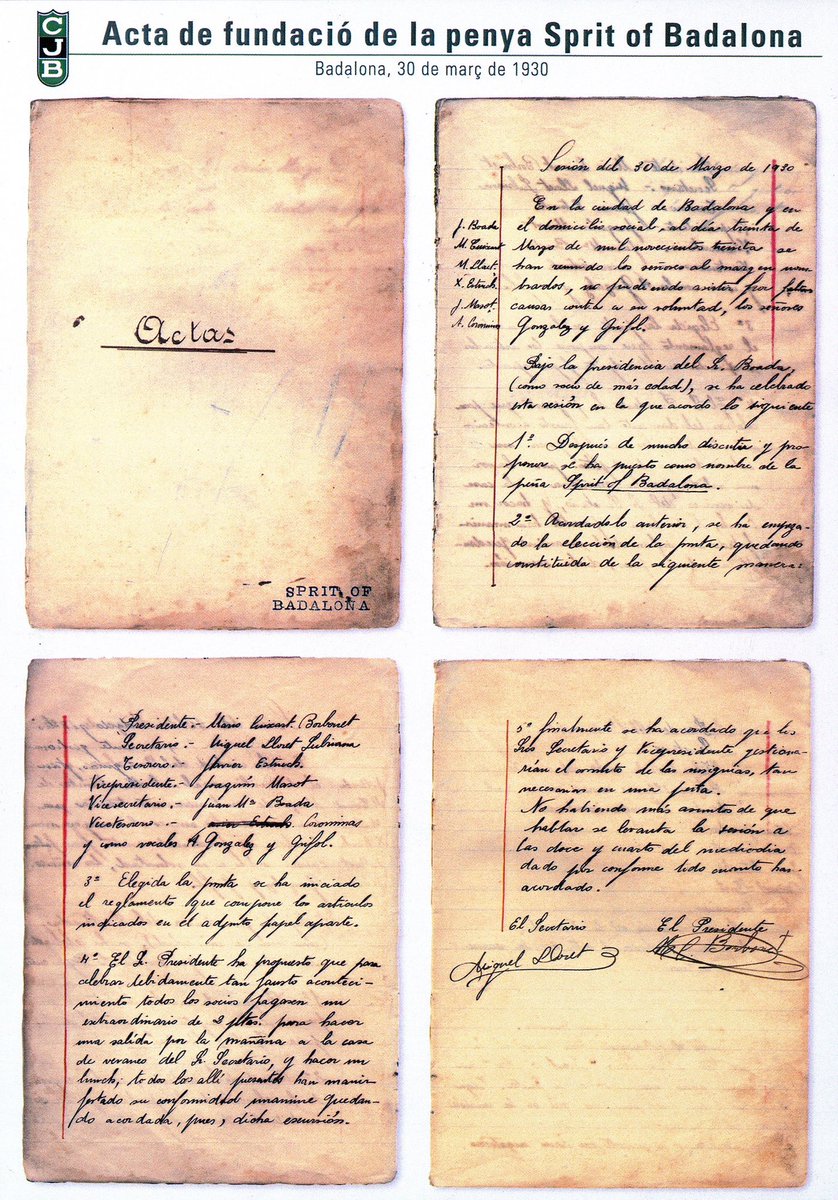 CJB
Acta de fundació de la penya Sprit of Badalona
Badalona, 30 de març de 1930
Actas
SPRIT OF
BADALONA
Sesión del 30 de Marzo de 1930
En la ciudad de Badalona y en
el domicilio social, al día treinta de
Marzo de mil novecientos treinta se
han reunido los señores al margen nom-
brados, no pudiendo asistir por
causas contra a su voluntad, los señores
Gonzalez y Grifol.
J. Boada
M. Cuixart
M. Lloret
X. Estruch
J. Masot
A. Corominas
Bajo la presidencia del Sr. Boada,
(como socio de más edad), se ha celebrado
esta sesión en la que acordo lo siguiente
1º. Después de mucho discutir y pro-
poner se ha puesto como nombre de la
peña Sprit of Badalona.
2º Acordado lo anterior, se ha empeza-
do la elección de la junta, quedando
constituida de la siguiente manera:
Presidente.- Mario Cuixart Borbonet
Secretario.- Miguel Lloret
Tesorero.- Javier Estruch
Vicepresidente.- Joaquín Masot
Vicesecretario.- Juan Mª Boada
Vicetesorero.- Corominas
y como vocales A. Gonzalez y Grifol.
3º Elegida la junta se ha iniciado
el reglamento que compone los artículos
indicados en el adjunto papel aparte.
4º El Sr. Presidente ha propuesto que para
celebrar debidamente tan fausto aconteci-
miento todos los socios pagasen un
extraordinario de 2 ptas. para hacer
una salida por la mañana a la casa
de veraneo del Sr. Secretario, y hacer un
lunch; todos los allí presentes han mani-
festado su conformidad unanime quedan-
do acordada, pues, dicha escursión.
5º finalmente se ha acordado que los
Srs Secretario y Vicepresidente gestiona-
rían el de las insignias, tan
necesarias en una peña.
No habiendo más asuntos de que
hablar se levanta la sesión a
las doce y cuarto del mediodia
dado por conforme todo cuanto has-
acordado.
El Secretario
El Presidente
Miguel Lloret
Borbonet